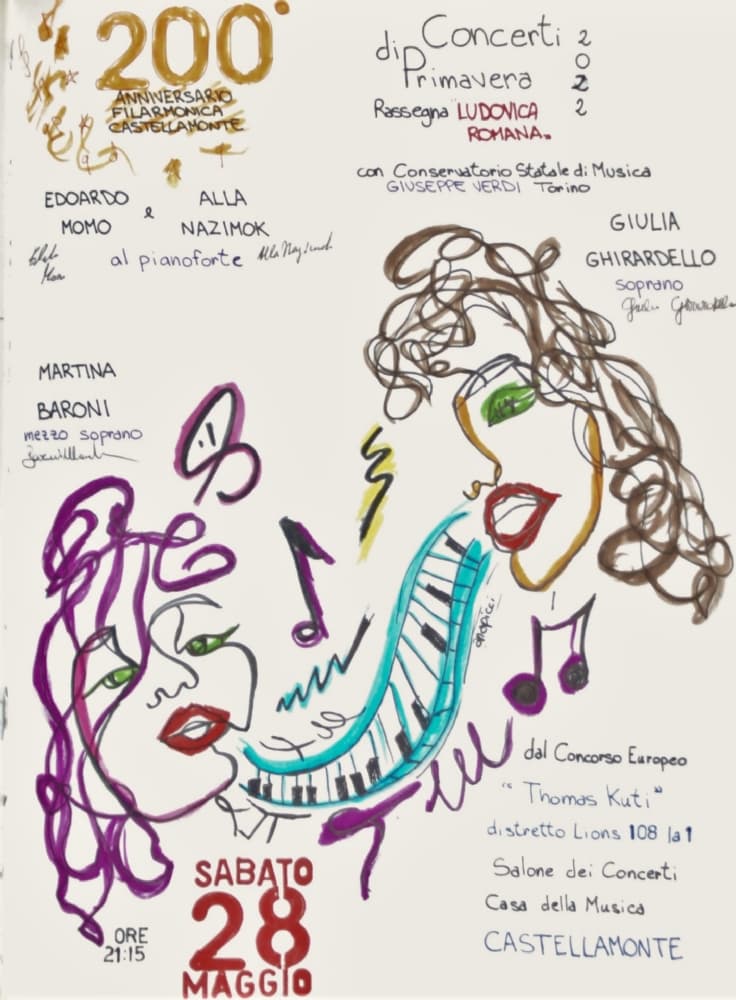 200°
ANNIVERSARIO
FILARMONICA
CASTELLAMONTE
Concerti
di Primavera
2022
Rassegna "LUDOVICA
ROMANA."
con Conservatorio Statale di Musica
GIUSEPPE VERDI Torino
EDOARDO MOMO e ALLA NAZIMOK
al pianoforte
GIULIA
GHIRARDELLO
soprano
MARTINA
BARONI
mezzo soprano
dal Concorso Europeo
"Thomas Kuti"
distretto Lions 108 Ia1
Salone dei Concerti
Casa della Musica
CASTELLAMONTE
SABATO
28
MAGGIO
ORE
21:15